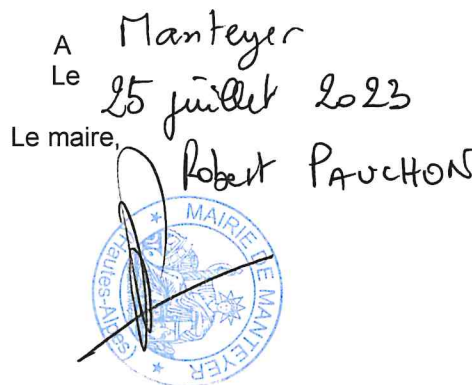 A Manteyer
Le 25 juillet 2023
Le maire,
Robert PAUCHON
MAIRIE DE MANTEYER
(Hautes-Alpes)